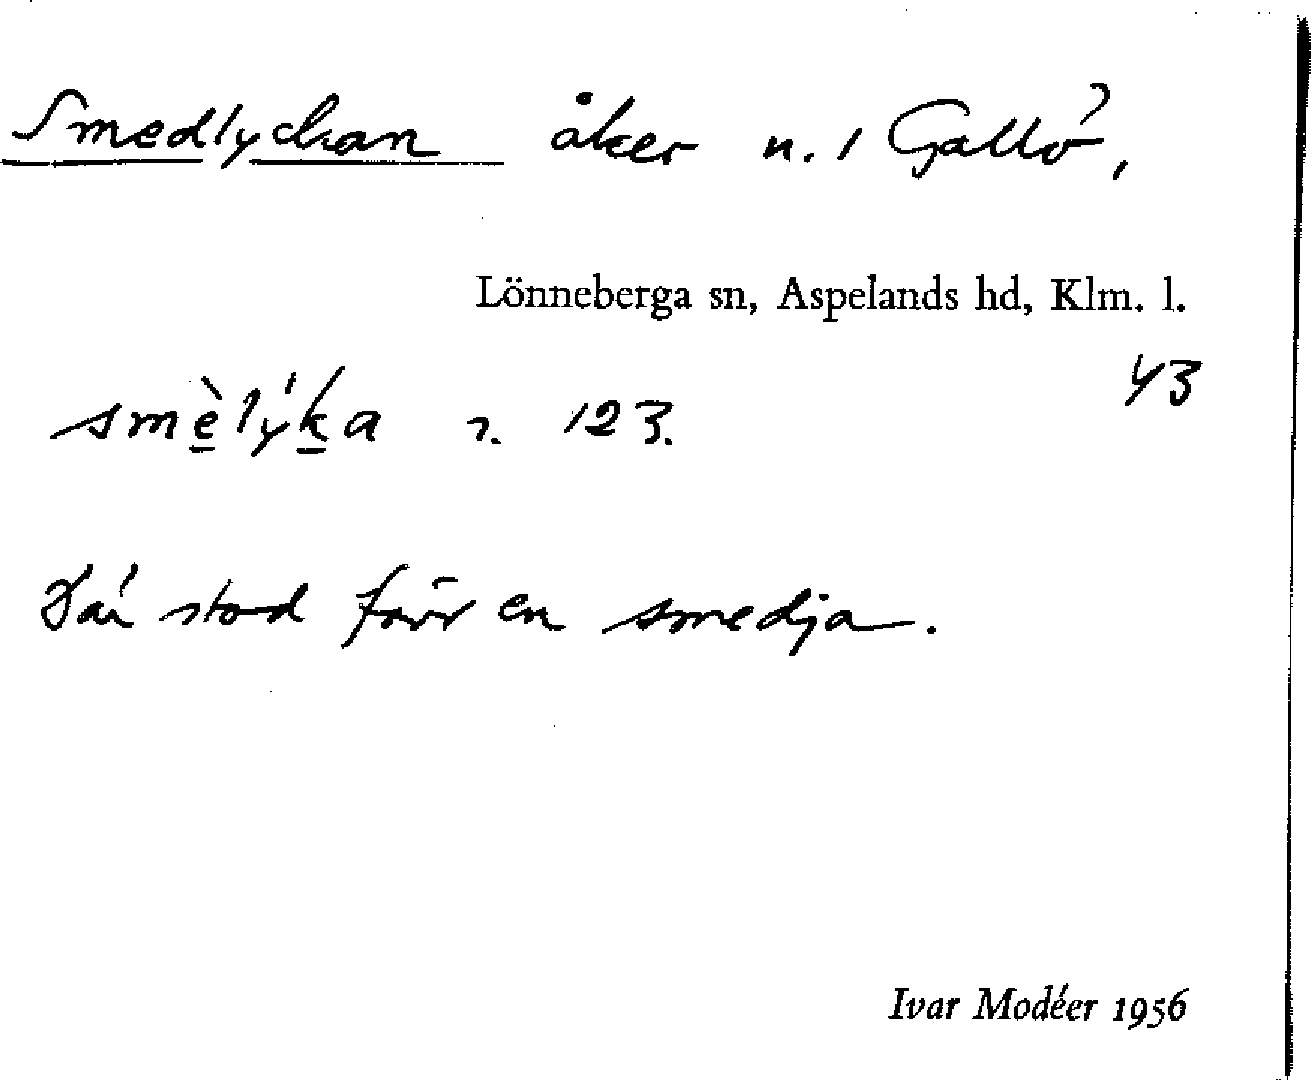 Smedlyckan åker n. 1 Gallö,
Lönneberga sn, Aspelands hd, Klm. l.
43
smèlýka 2. 123.
Där stod förr en smedja.
Ivar Modéer 1956